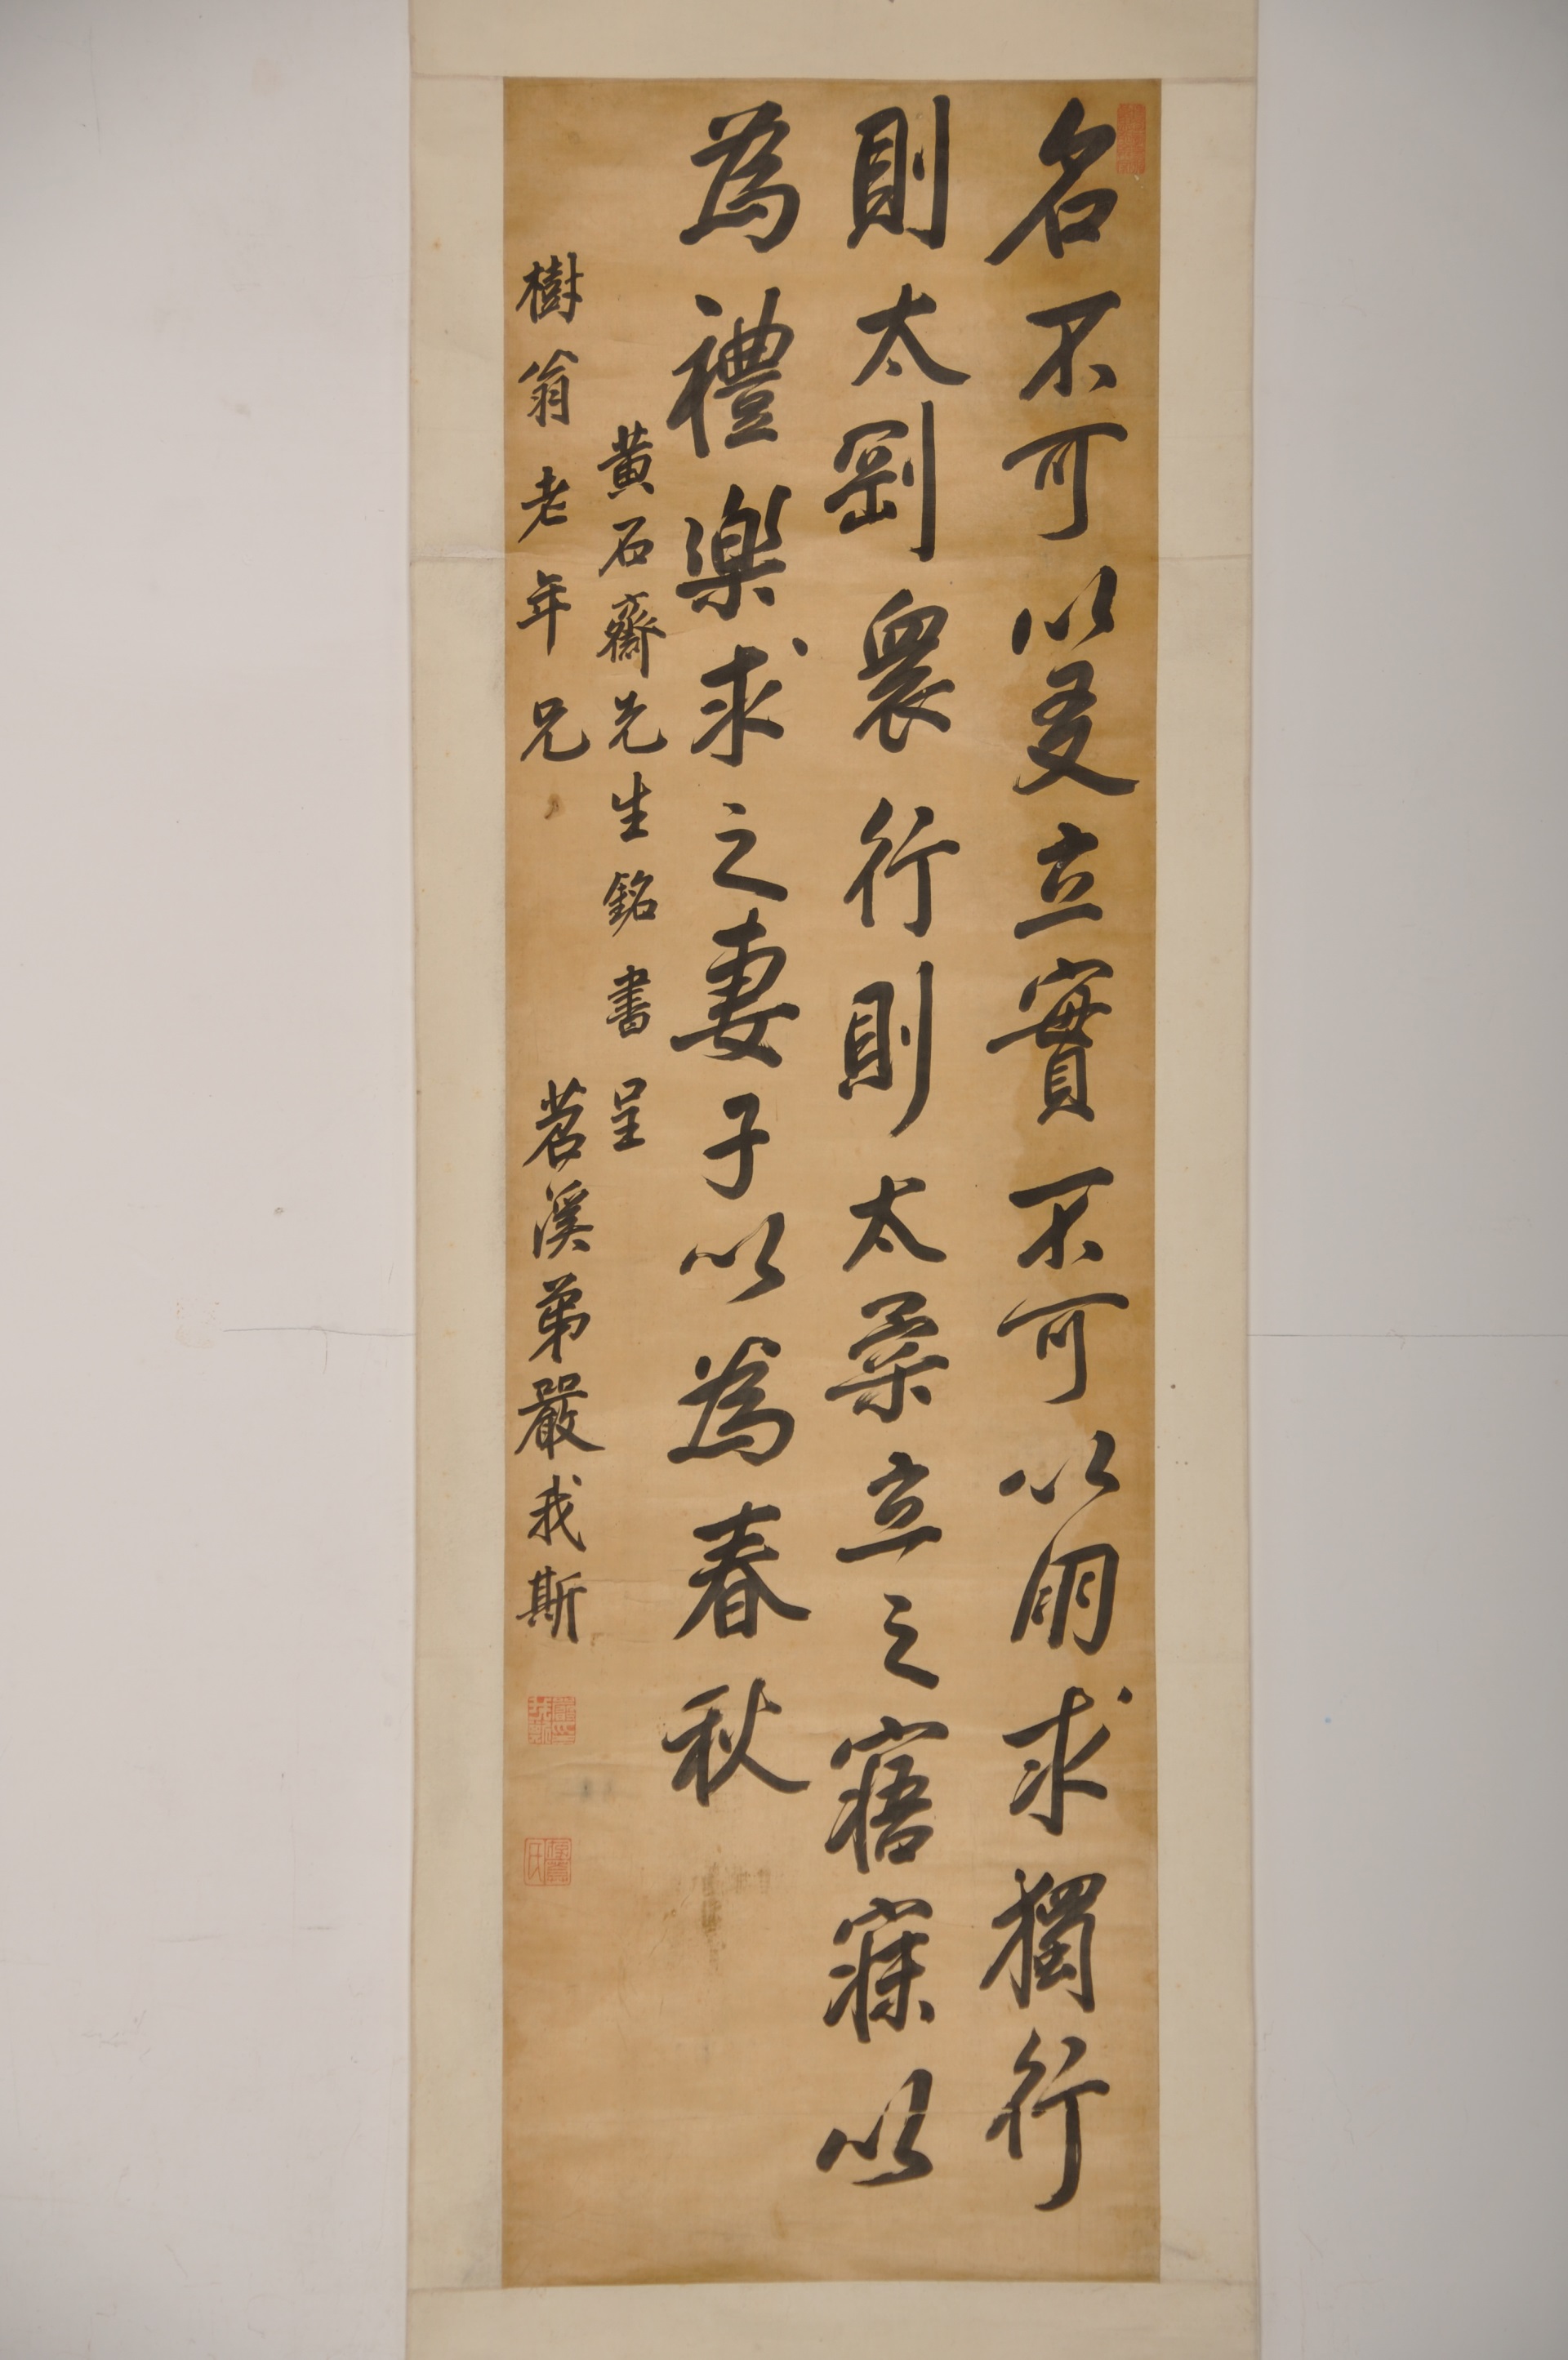 名不可以立實不可以明求獨行
則太剛眾行則太柔立之寤寐以
為禮樂求之妻子以為春秋
黄石齋先生銘書呈
樹翁老年兄 苕溪弟嚴我斯